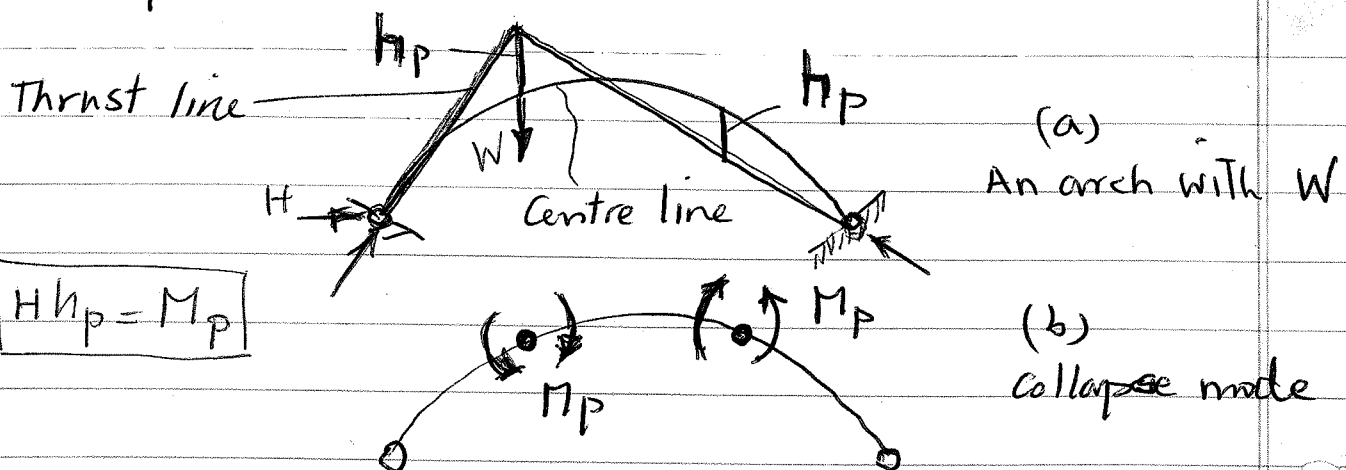 hp
hp
Thrust line
(a)
W
An arch with W
H
Centre line
Hhp = Mp
Mp
(b)
Mp
Collapse mode